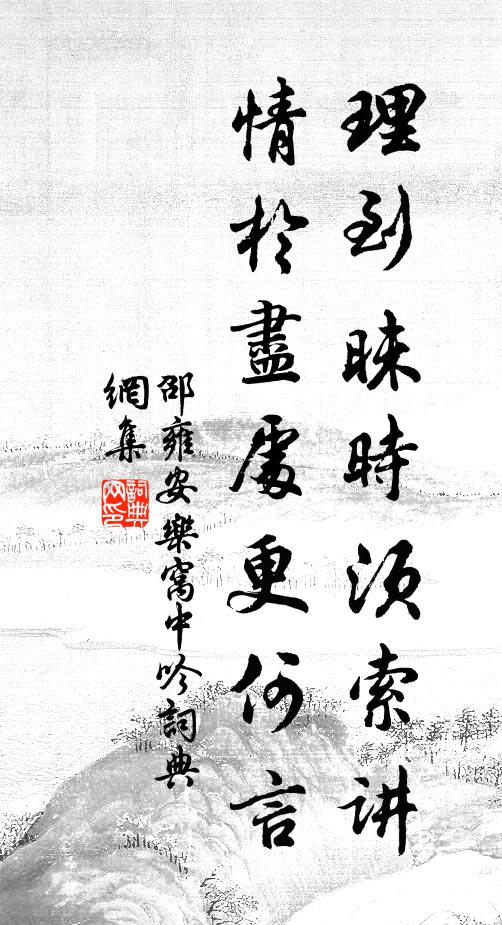 理到昧時須索講
情於盡處更何言
邵雍安樂窩中吟詞典
網集
詞典
网印